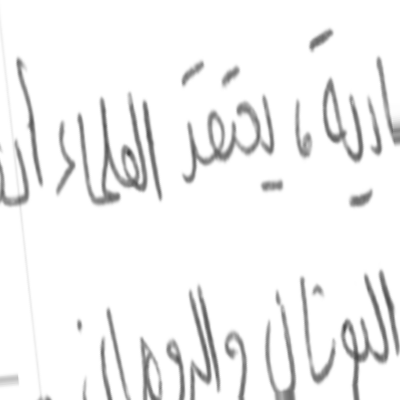 ادية، يعتقد العلماء أن
اليونان والرومان